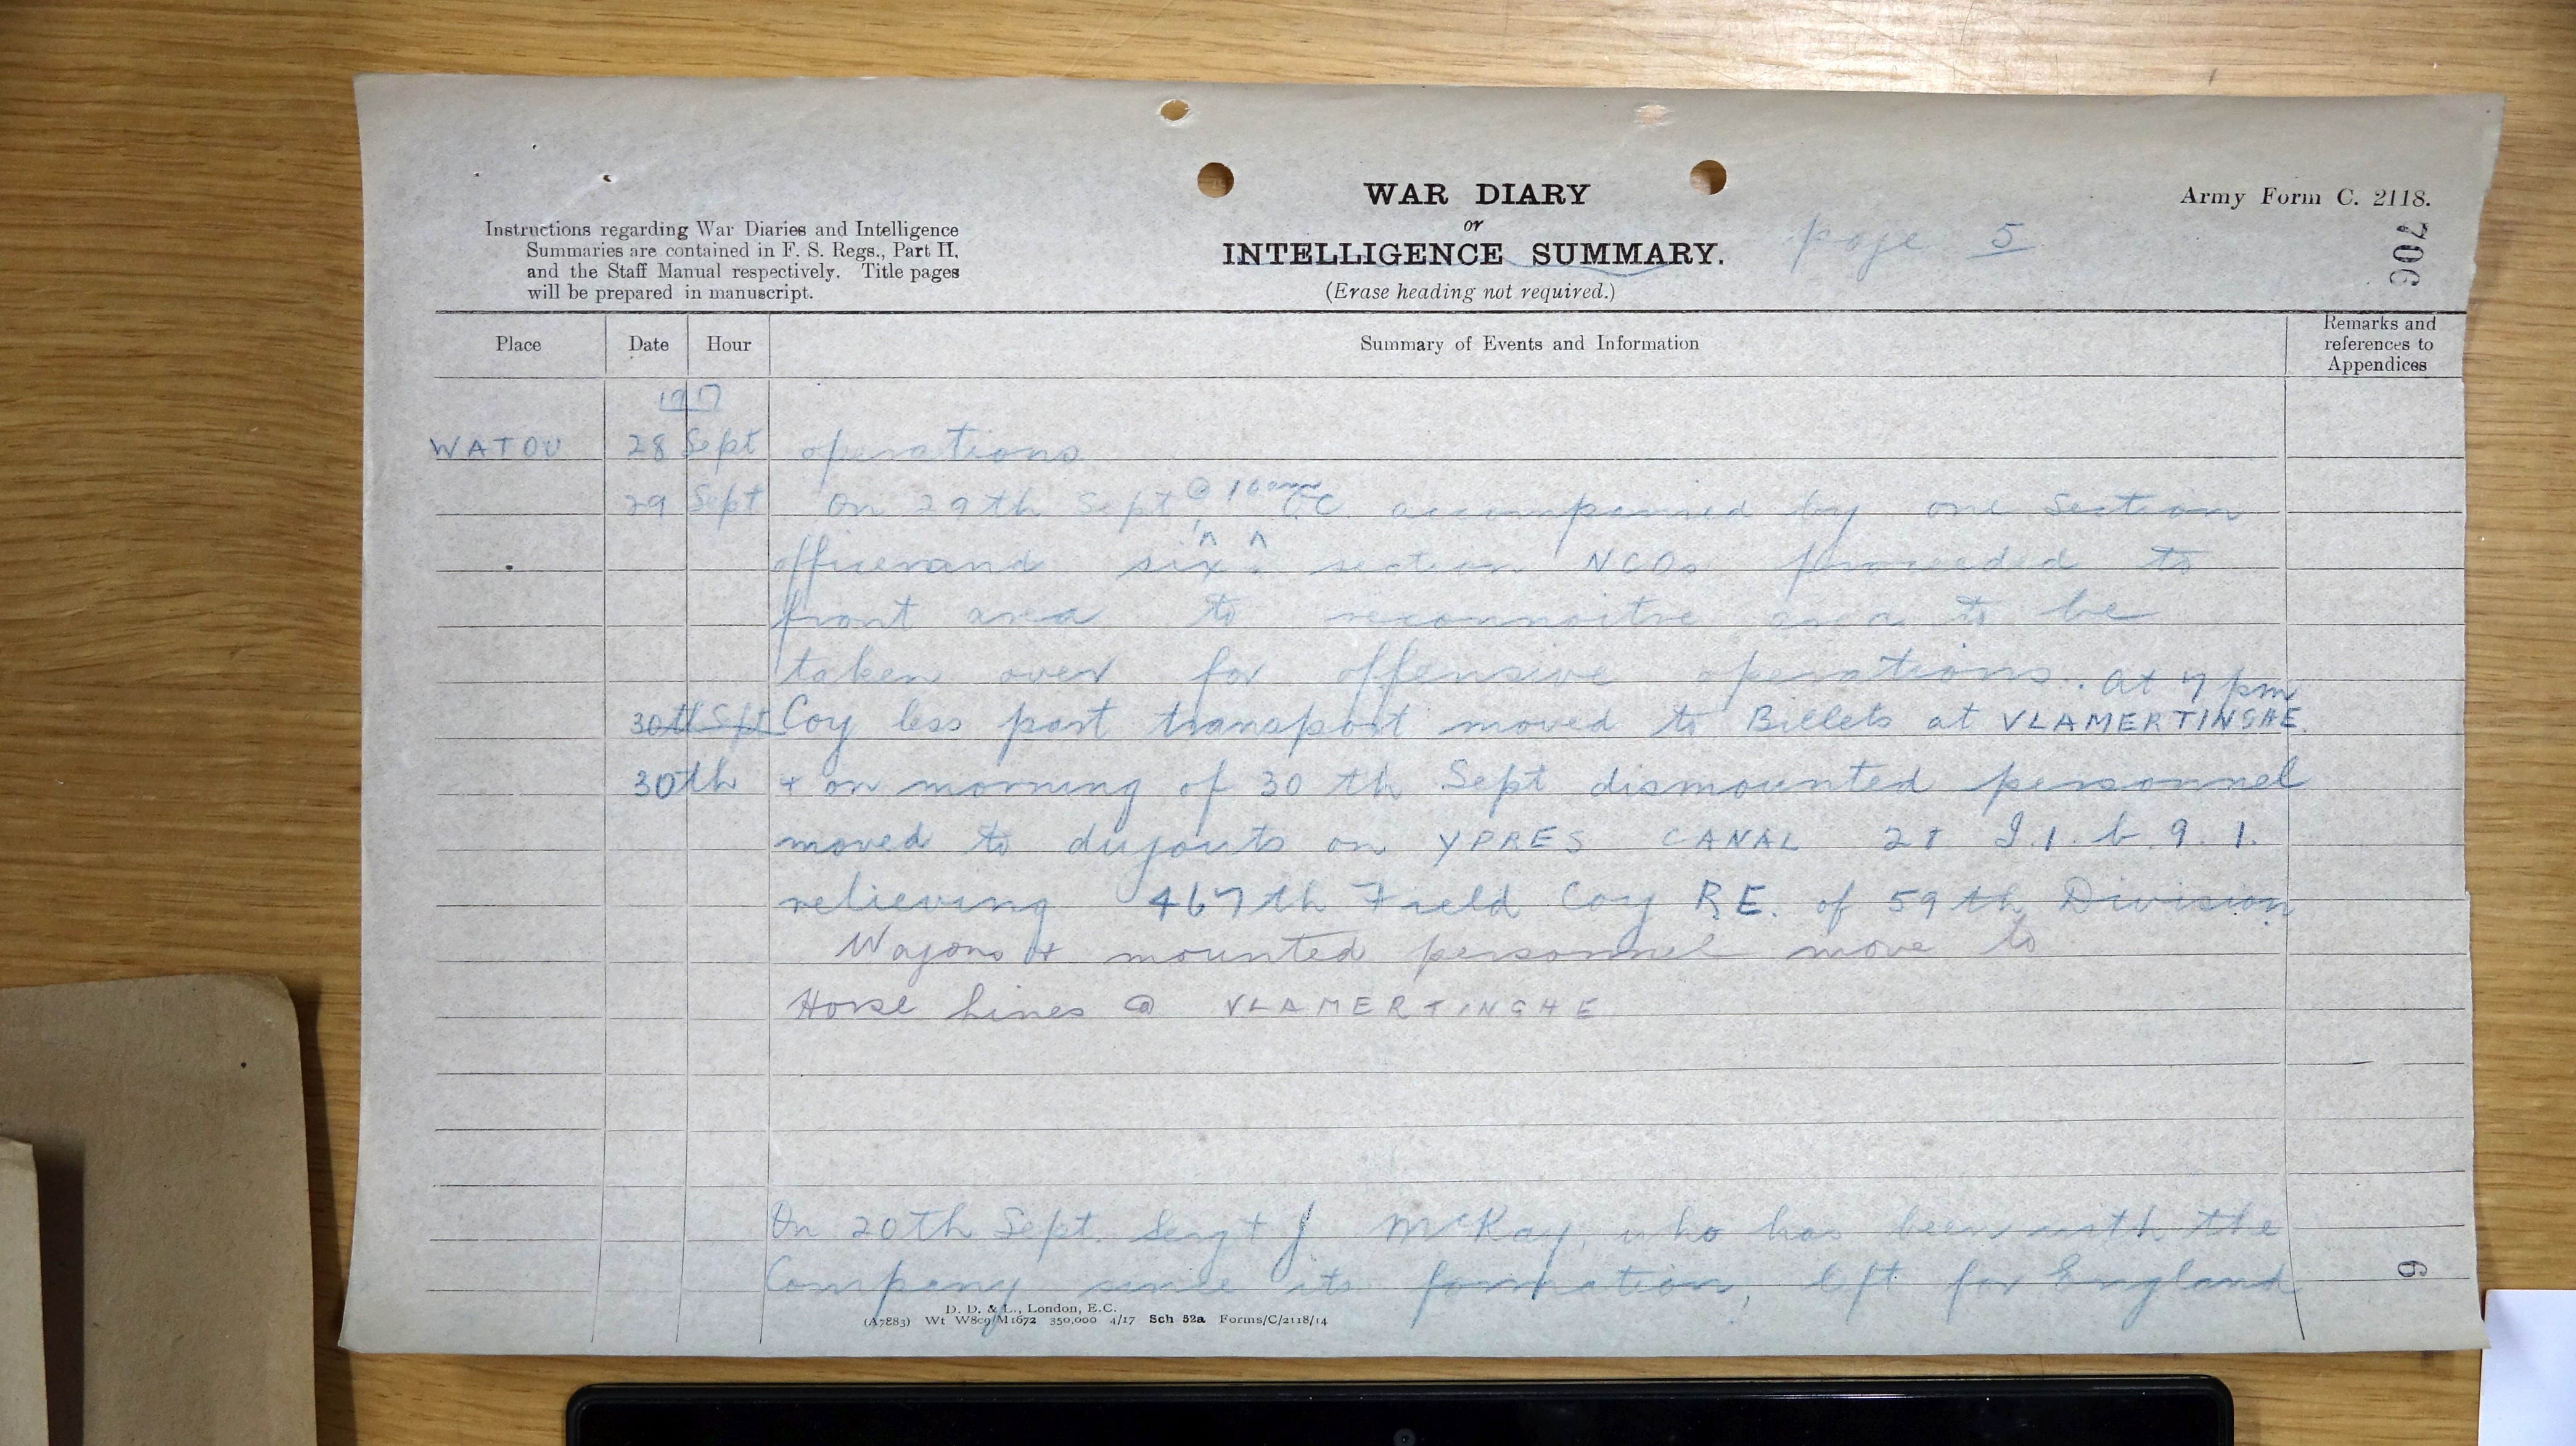 WAR DIARY
or
INTELLIGENCE SUMMARY.
(Erase heading not required.)
page 5
Army Form C. 2118.
706
Instructions regarding War Diaries and Intelligence
Summaries are contained in F. S. Regs., Part II,
and the Staff Manual respectively. Title pages
will be prepared in manuscript.
Place Date Hour Summary of Events and Information Remarks and references to Appendices
1917
WATOU 28 Sept operations
29 Sept On 29th Sept @ 10am O.C. accompanied by one Section
officer and six section NCOs proceeded to
front area to reconnoitre area to be
taken over for offensive operations. At 7 pm
30th Spt Coy less part transport moved to Billets at VLAMERTINGHE.
30th + on morning of 30th Sept dismounted personnel
moved to dugouts on YPRES CANAL at I.1.b.9.1.
relieving 467th Field Coy R.E. of 59th Division
Wagons + mounted personnel move to
Horse Lines @ VLAMERTINGHE
On 20th Sept. Sergt J McKay, who has been with the
Company since its formation, left for England
6
D. D. & L., London, E.C.
(A7883) Wt W809/M1672 350,000 4/17 Sch 52a Forms/C/2118/14